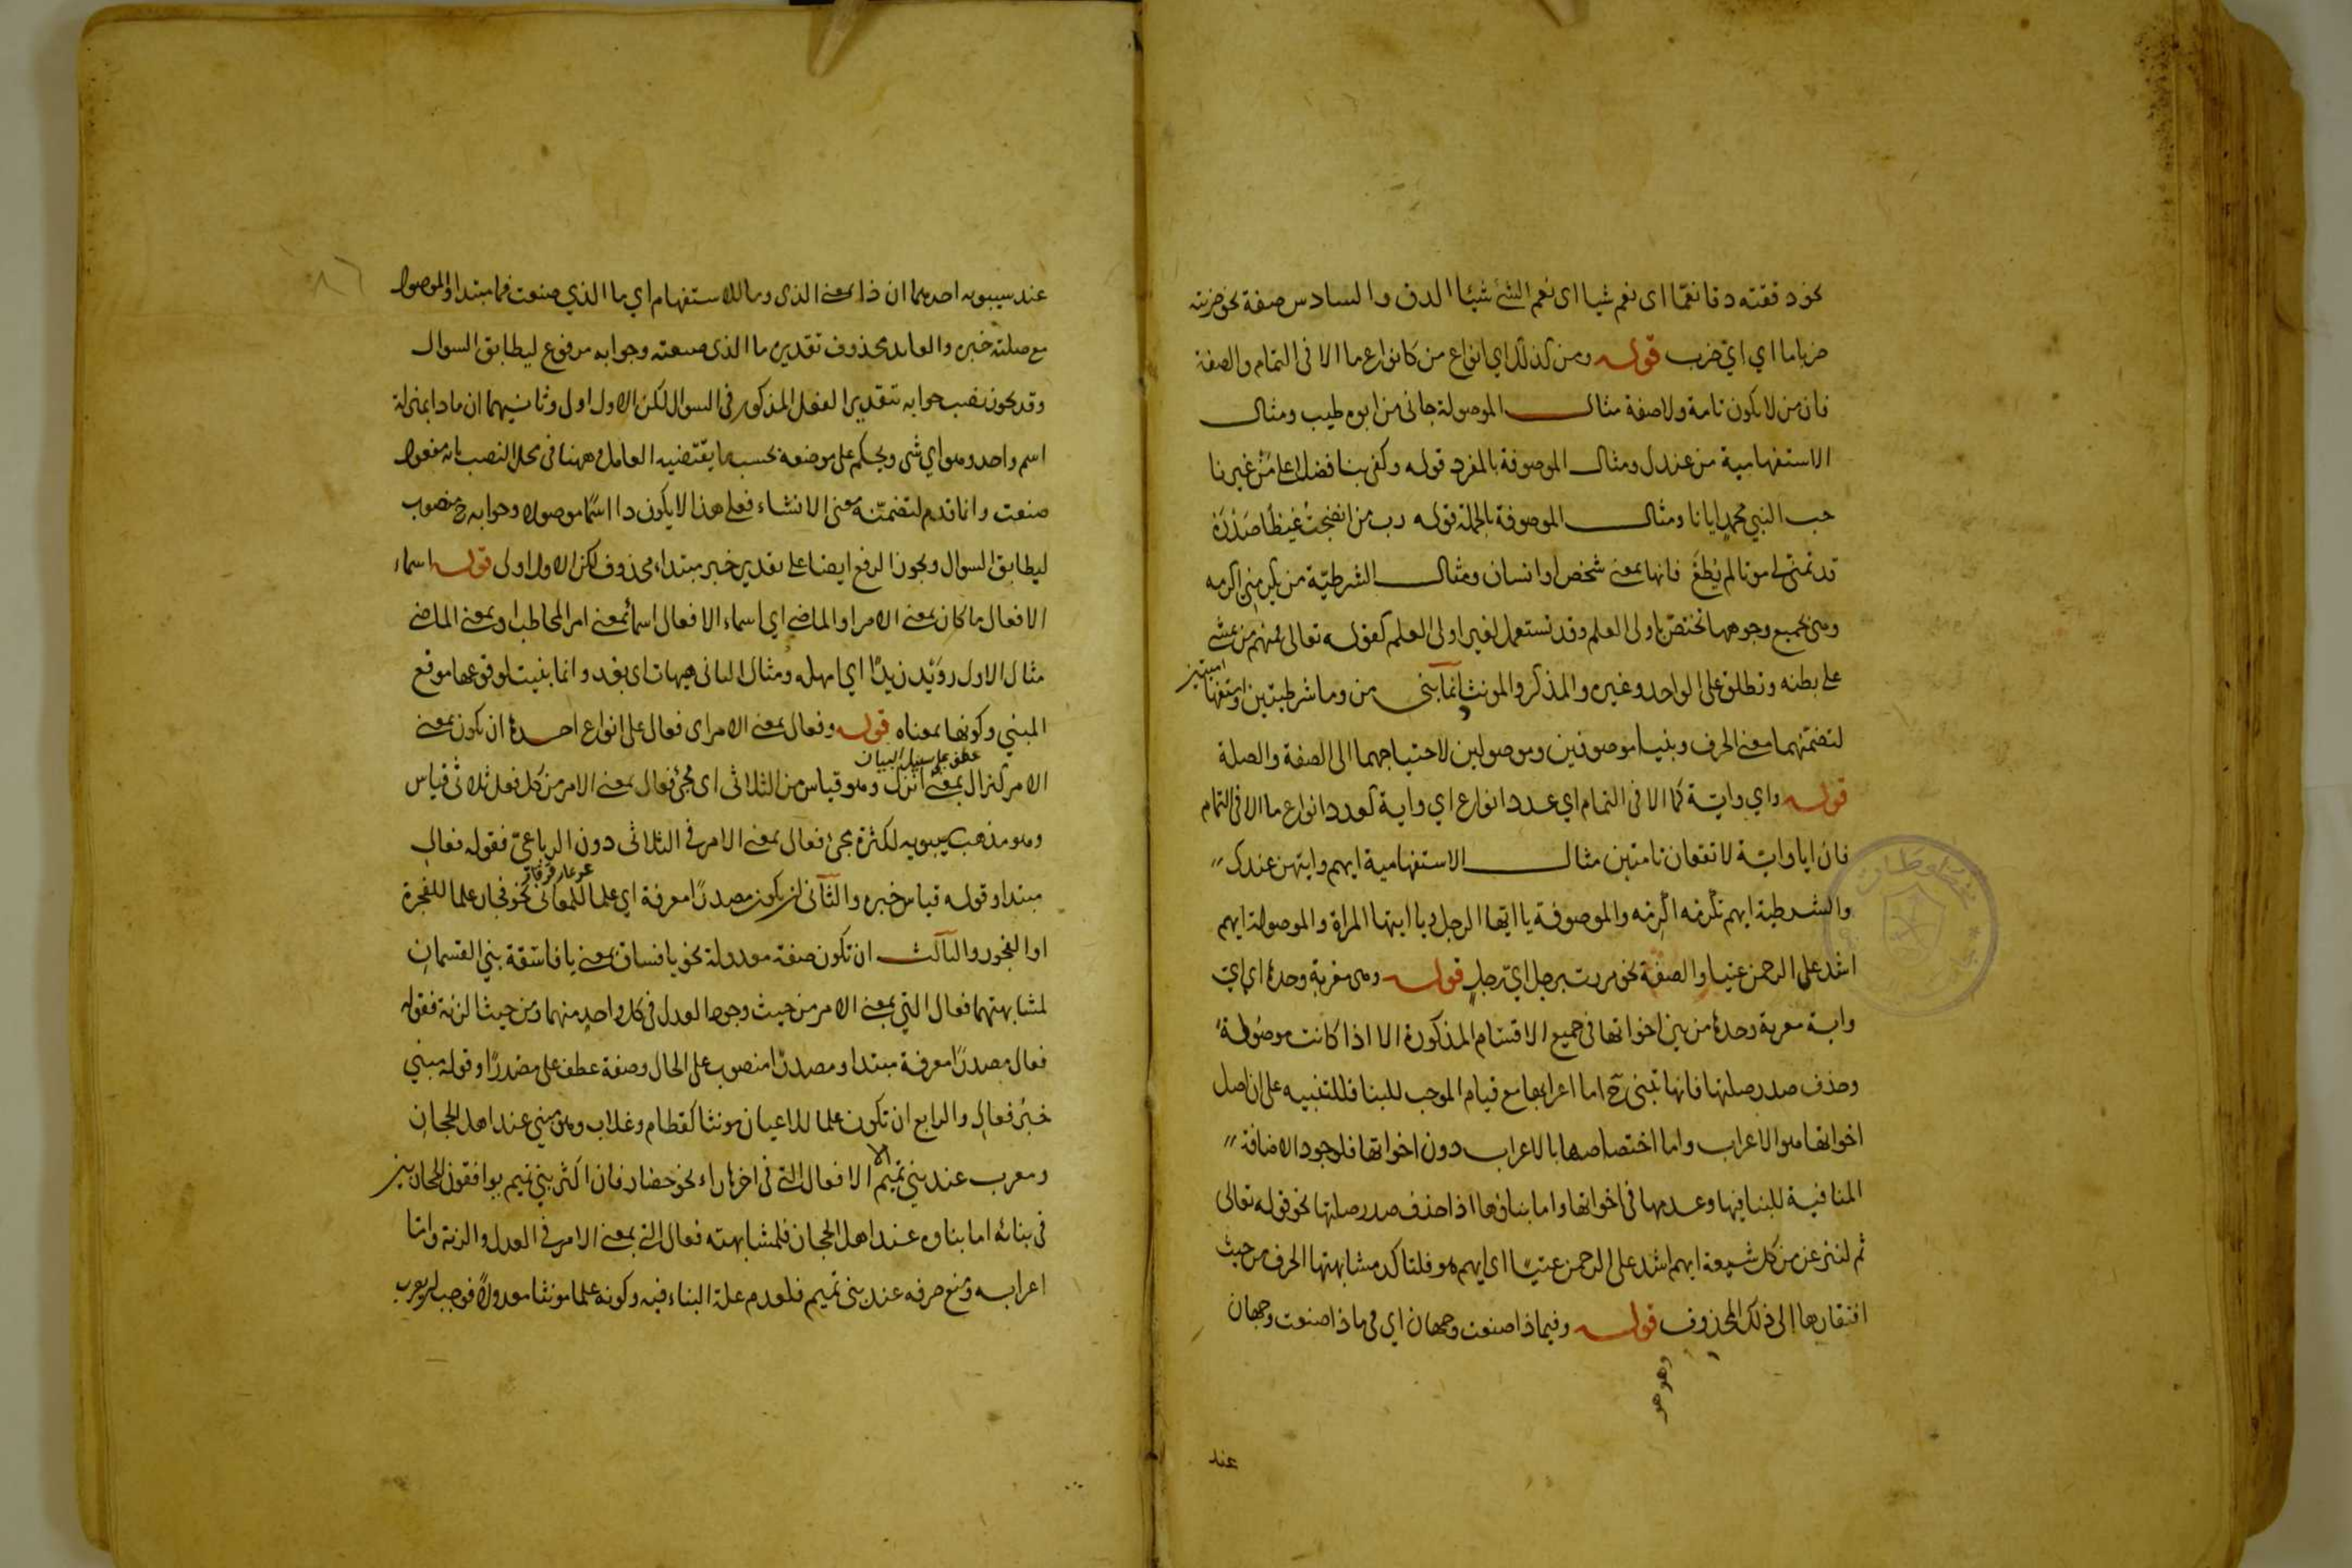 نحو دققته دقا نعمّا اى نعم شيا اى نعم الشئ شيئا الدق والسادس صفة نحو ضربته
ضربا ما اي ايّ ضرب قوله ومن كذلك اي انواع من كانواع ما الا فى التمام والصفة
فان من لا يكون تامة ولا صفة مثال الموصولة جانى من ابوه طيب ومثال
الاستفهامية من عندك ومثال الموصوفة بالمفرد قوله وكفى بنا فضلا على مَنْ غيرنا
حب النبي محمدٍ ايانا ومثال الموصوفة بالجملة قوله رب من انضجتُ غيظًا صَدْرَهُ
قد تمنّى لى موتا لم يُطَعْ فانها بمعنى شخص او انسان ومثال الشرطيّة من يكرمنى اكرمه
وهى بجميع وجوهها تختصّ باولى العلم وقد تستعمل لغير اولى العلم كقوله تعالى فمنهم من يمشى
على بطنه وتطلق على الواحد وغيره والمذكر والمونث وانما بنى من وما شرطيتين واستفهاميتين
لتضمنهما معنى الحرف وبنيا موصوفين وموصولين لاحتياجهما الى الصفة والصلة
قوله واي وايّة كما الا فى التمام اي عدد انواع اي واية كعدد انواع ما الا فى التمام
فان ايا وايّة لا تقعان تامتين مثال الاستفهامية ايهم وايتهن عندك
والشرطية ايهم تكرمْه اكْرِمْه والموصوفة يا ايّها الرجل ويا ايتها المراة والموصولة ايهم
اشد على الرحمن عتيا والصفة نحو مررت برجل ايّ رجلٍ قوله وهى معربة وحدها اي ايّ
واية معربة وحدها من بين اخواتها فى جميع الاقسام المذكورة الا اذا كانت موصولة
وحذف صدر صلتها فانها تبنى ح اما اعرابها مع قيام الموجب للبنا فللتنبيه على ان اصل
اخواتها هو الاعراب واما اختصاصها بالاعراب دون اخواتها فلوجود الاضافة
المنافية للبنا فيها وعدمها فى اخواتها واما بناؤها اذا حذف صدر صلتها نحو قوله تعالى
ثم لننزعن من كل شيعة ايهم اشد على الرحمن عتيّا اى ايهم هو فلتاكد مشابهتها الحرف من حيث
افتقارها إلى ذلك المحذوف قوله وفيما ذا صنعت وجهان اي فى ما ذا صنعت وجهان
وهو هو
عند
عند سيبويه احدهما ان ذا بمعنى الذى وما للاستفهام اي ما الذي صنعت فما مبتدا والموصول
مع صلته خبره والعايد محذوف تقديره ما الذى صنعته وجوابه مرفوع ليطابق السوال
وقد يجوز نصب جوابه بتقدير الفعل المذكور فى السوال لكن الاول اولى وثانيهما ان ماذا بمنزلة
اسم واحد وهو اي شى ويحكم على موضعه بحسب ما يقتضيه العامل وههنا فى محل النصب بانه مفعول
صنعت وانما قدم لتضمّنه معنى الانشاء فعلى هذا لا يكون ذا اسمًا موصولا وجوابه ح منصوب
ليطابق السوال ويجوز الرفع ايضا على تقدير خبر مبتداء محذوف لكن الاول اولى قوله اسماء
الافعال ما كان بمعنى الامر او الماضى اي اسماء الافعال اسمأ بمعنى امر المخاطب او بمعنى الماضى
مثال الاول رويْد زيدًا اي امهله ومثال الثانى هيهات اى بعُد وانما بنيت لوقوعها موقع
المبني وكونها بمعناه قوله وفعال بمعنى الامر اى فعال على انواع احدها ان يكون بمعنى
عطف على سبيل البيان
الامر كنزال بمعنى انزل وهو قياس من الثلاثى اى مجئ فعال بمعنى الامر من كل فعل ثلاثى قياس
وهو مذهب سيبويه لكثرة مجئ فعال بمعنى الامر فى الثلاثى دون الرباعىّ فقوله فعالِ
عرعار وقرقار
مبتدا وقوله قياس خبره والثانى ان يكون مصدرًا معرفة اي علما للمعانى نحو فجار علما للفجرة
او الفجور والثالث ان تكون صفة معدولة نحو يا فساق بمعنى يا فاسقة بني القسمانِ
لمشابهتهما فعال التي بمعنى الامر من حيث وجود العدل فى كل واحد منهما ومن حيث الزنة فقوله
فعال مصدرًا معرفة مبتدا ومصدرًا منصوب على الحال وصفة عطف على مصدرًا وقوله مبني
خبرُ فعالِ والرابع ان تكون علما للاعيان مونثا كقطام وغلاب وهو مبني عند اهل الحجاز
ومعرب عند بني تميم الا الافعال التى فى اخرها راء نحو حضار فان اكثر بني تميم يوافقون الحجازيين
فى بنائه اما بناوه عند اهل الحجاز فلمشابهته فعال التى بمعنى الامر فى العدل والزنة وامّا
اعرابه ومنع صرفه عند بنى تميم فلعدم علة البناء فيه وكونه علما مونثا معدولاً فوجب ان يعرب